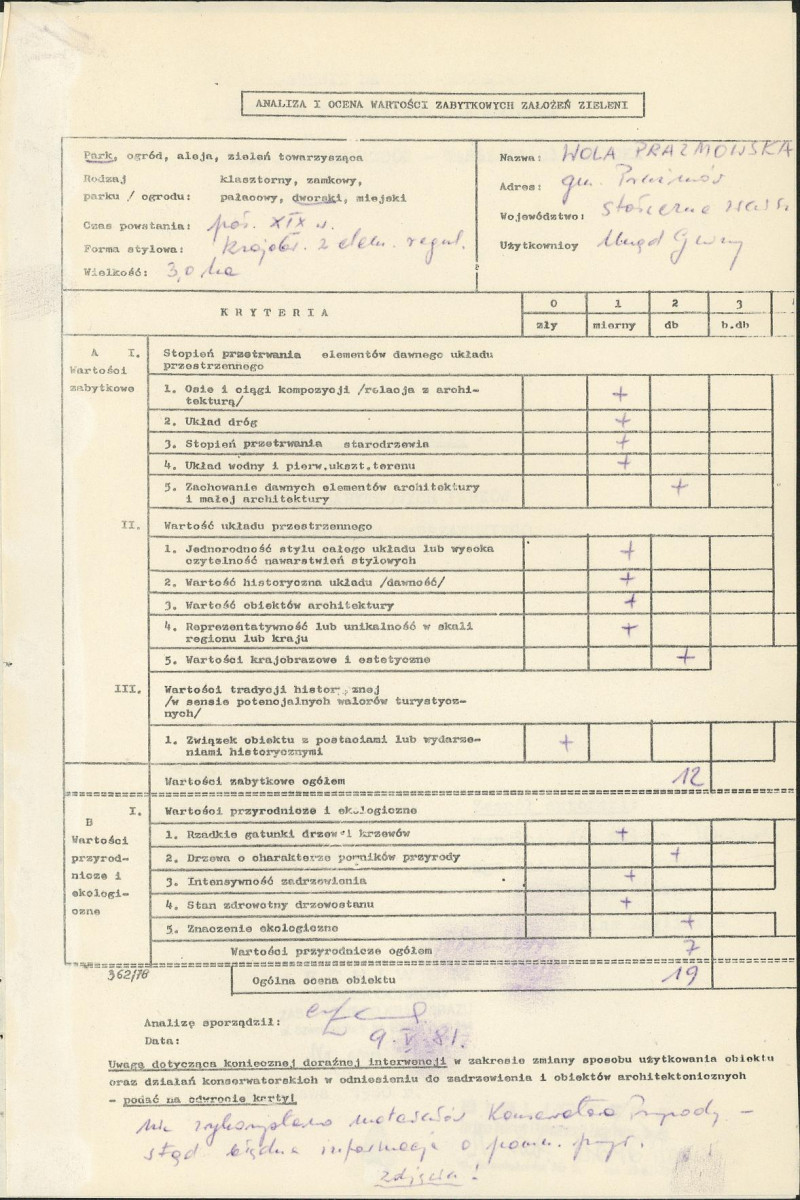 ANALIZA I OCENA WARTOŚCI ZABYTKOWYCH ZAŁOŻEŃ ZIELENI
Park, ogród, aleja, zieleń towarzysząca
Rodzaj klasztorny, zamkowy,
parku / ogrodu: pałacowy, dworski, miejski
Czas powstania: poł. XIX w.
Forma stylowa: Krajobr. z elem. regul.
Wielkość: 3,0 ha
Nazwa: WOLA PRAŻMOWSKA
Adres: gm. Prażmów
Województwo: stołeczne warsz.
Użytkownicy Urząd Gminy
KRYTERIA
0 1 2 3
zły mierny db b.db
A I. Stopień przetrwania elementów dawnego układu
Wartości przestrzennego
zabytkowe 1. Osie i ciągi kompozycji /relacja z archi-
tekturą/ +
2. Układ dróg +
3. Stopień przetrwania starodrzewia +
4. Układ wodny i pierw.ukszt.terenu +
5. Zachowanie dawnych elementów architektury
i małej architektury +
II. Wartość układu przestrzennego
1. Jednorodność stylu całego układu lub wysoka
czytelność nawarstwień stylowych +
2. Wartość historyczna układu /dawność/ +
3. Wartość obiektów architektury +
4. Reprezentatywność lub unikalność w skali
regionu lub kraju +
5. Wartości krajobrazowe i estetyczne +
III. Wartości tradycji historycznej
/w sensie potencjalnych walorów turystycz-
nych/
1. Związek obiektu z postaciami lub wydarze-
niami historycznymi +
Wartości zabytkowe ogółem 12
B I. Wartości przyrodnicze i ekologiczne
Wartości 1. Rzadkie gatunki drzew i krzewów +
przyrod- 2. Drzewa o charakterze pomników przyrody +
nicze i 3. Intensywność zadrzewienia +
ekologi- 4. Stan zdrowotny drzewostanu +
czne 5. Znaczenie ekologiczne +
Wartości przyrodnicze ogółem 7
362/78 Ogólna ocena obiektu 19
Analizę sporządził:
Data: 9. V. 81.
Uwaga dotycząca koniecznej doraźnej interwencji w zakresie zmiany sposobu użytkowania obiektu
oraz działań konserwatorskich w odniesieniu do zadrzewienia i obiektów architektonicznych
- podać na odwrocie karty!
nie wykorzystano materiałów Konserwatora Przyrody -
stąd błędna informacja o pomn. przyr.
zdjęcia!